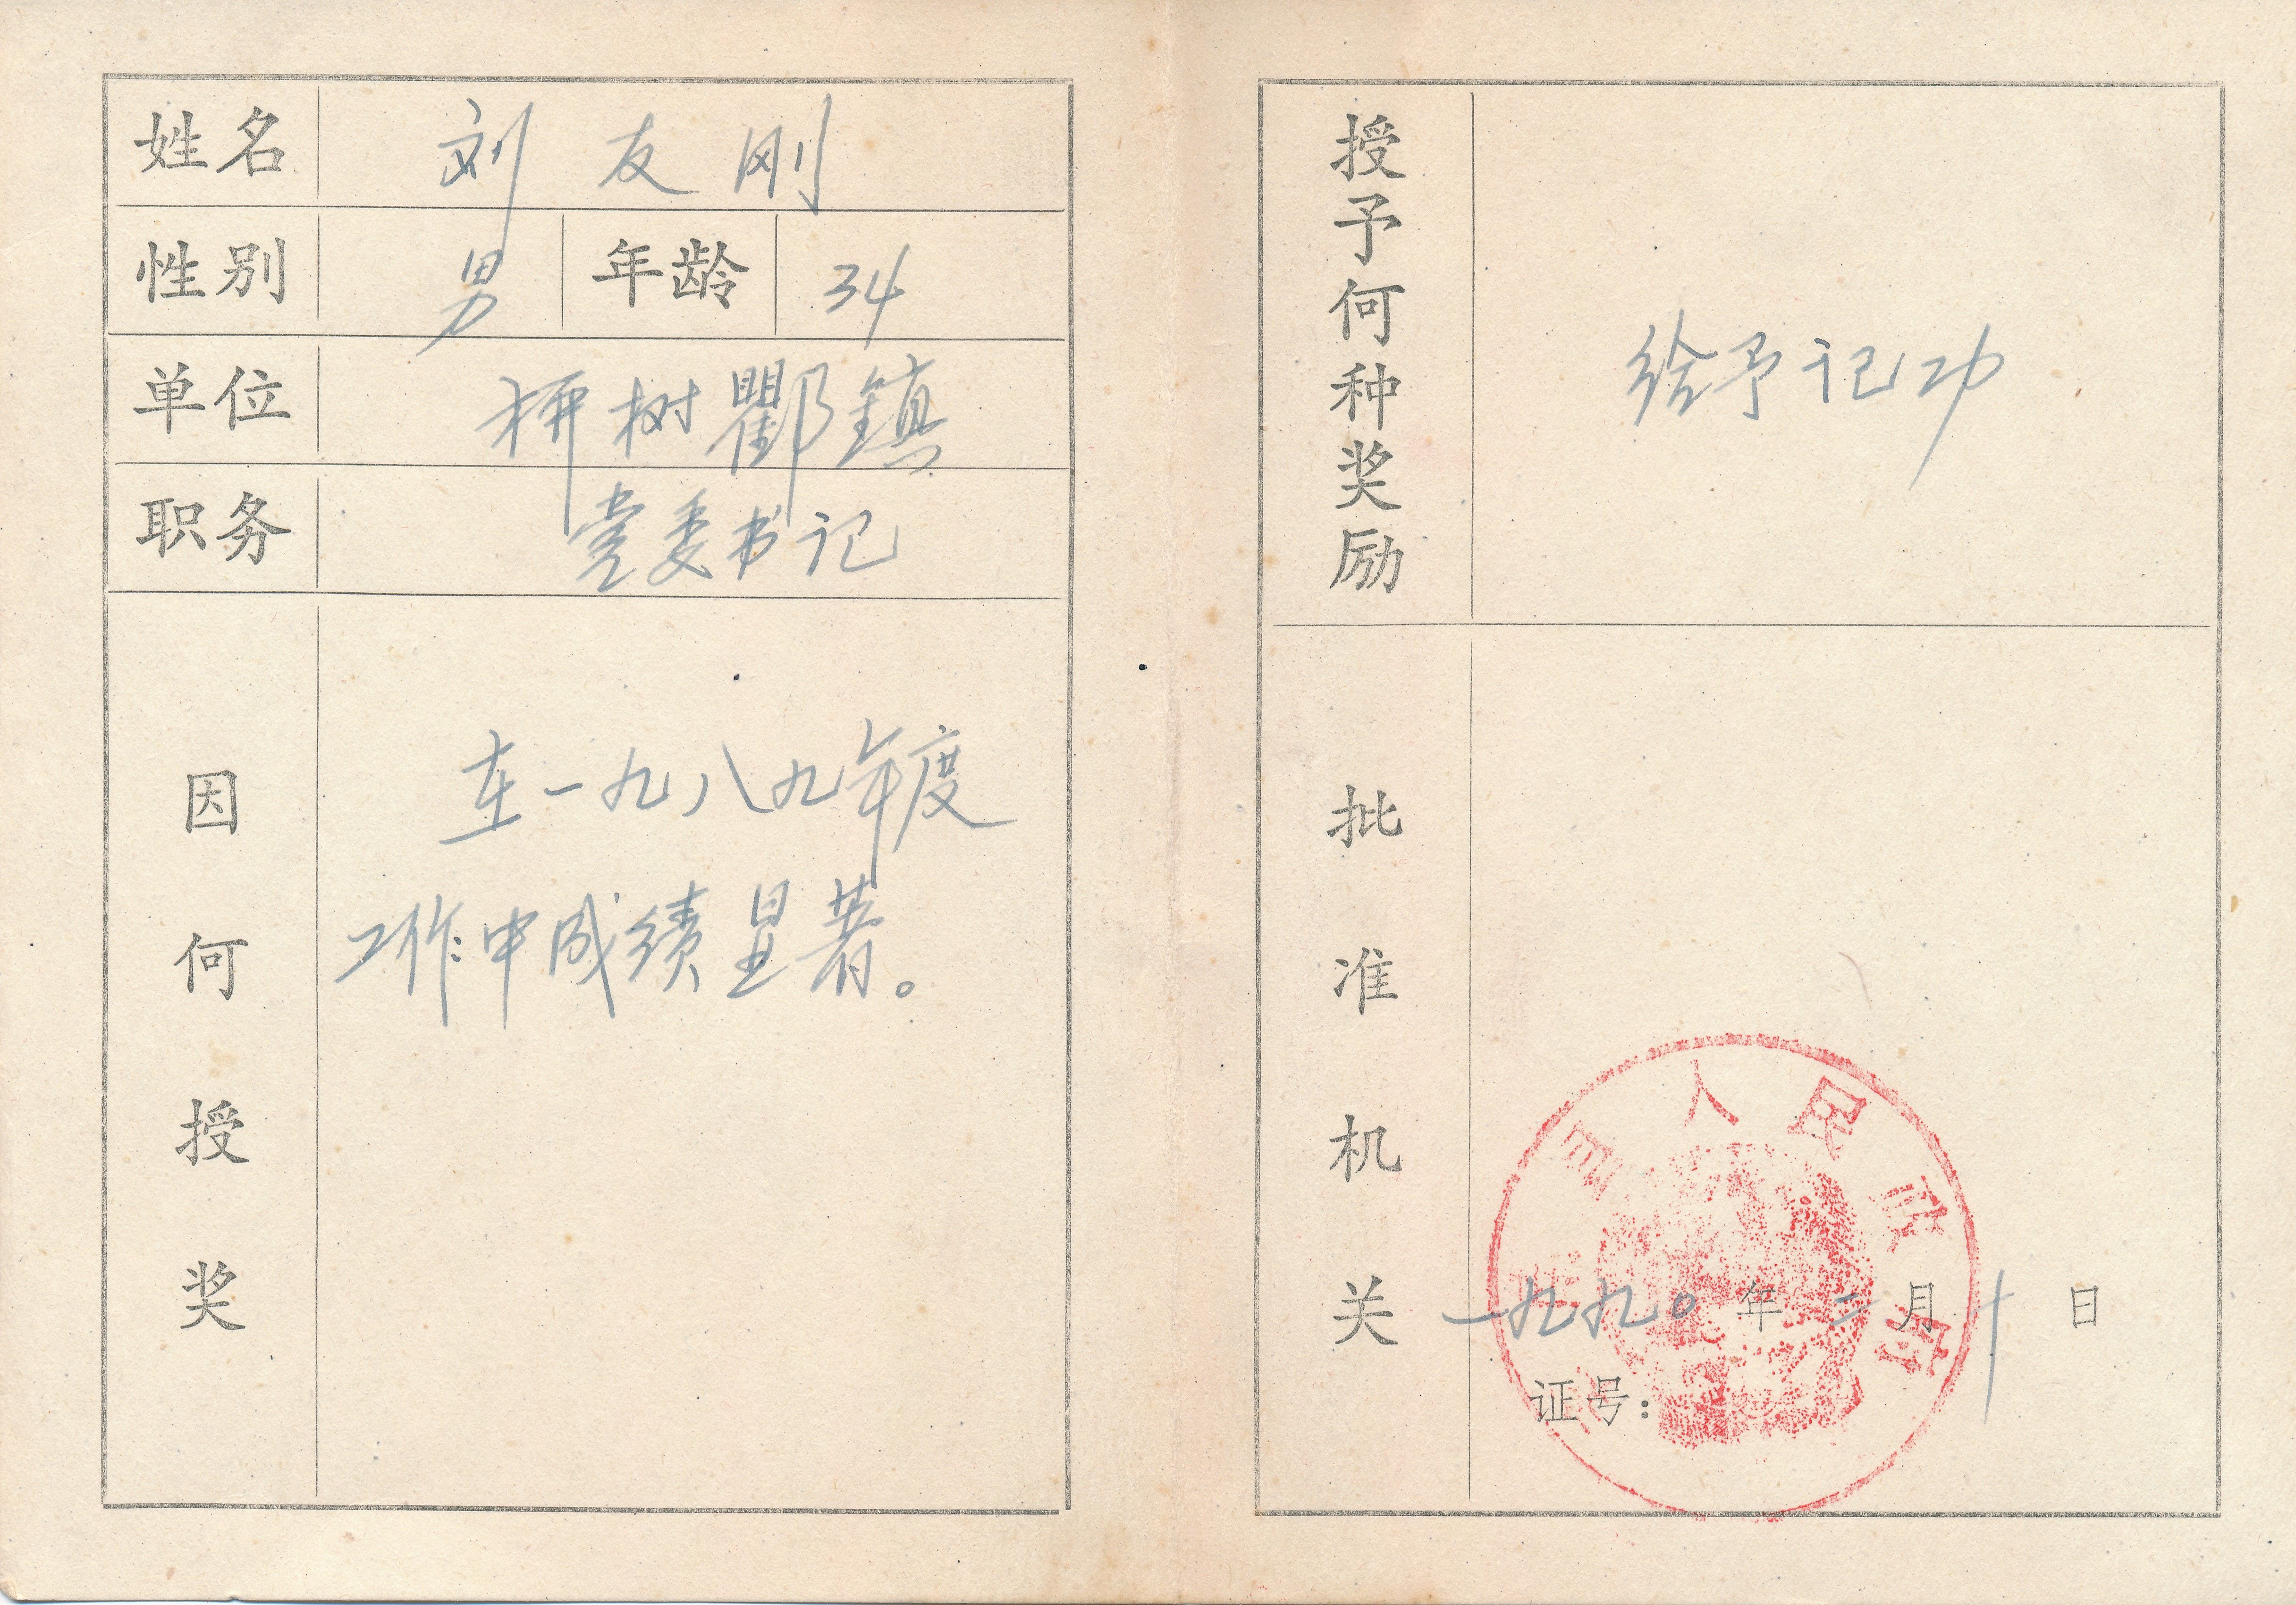 姓名 刘友刚
性别 男 年龄 34
单位 树 鎮
职务 党委书记
因何授奖
在一九八九年度
工作中成绩显著。
授予何种奖励
给予记功
批准机关
人民政府
一九九〇年二月十日
证号：